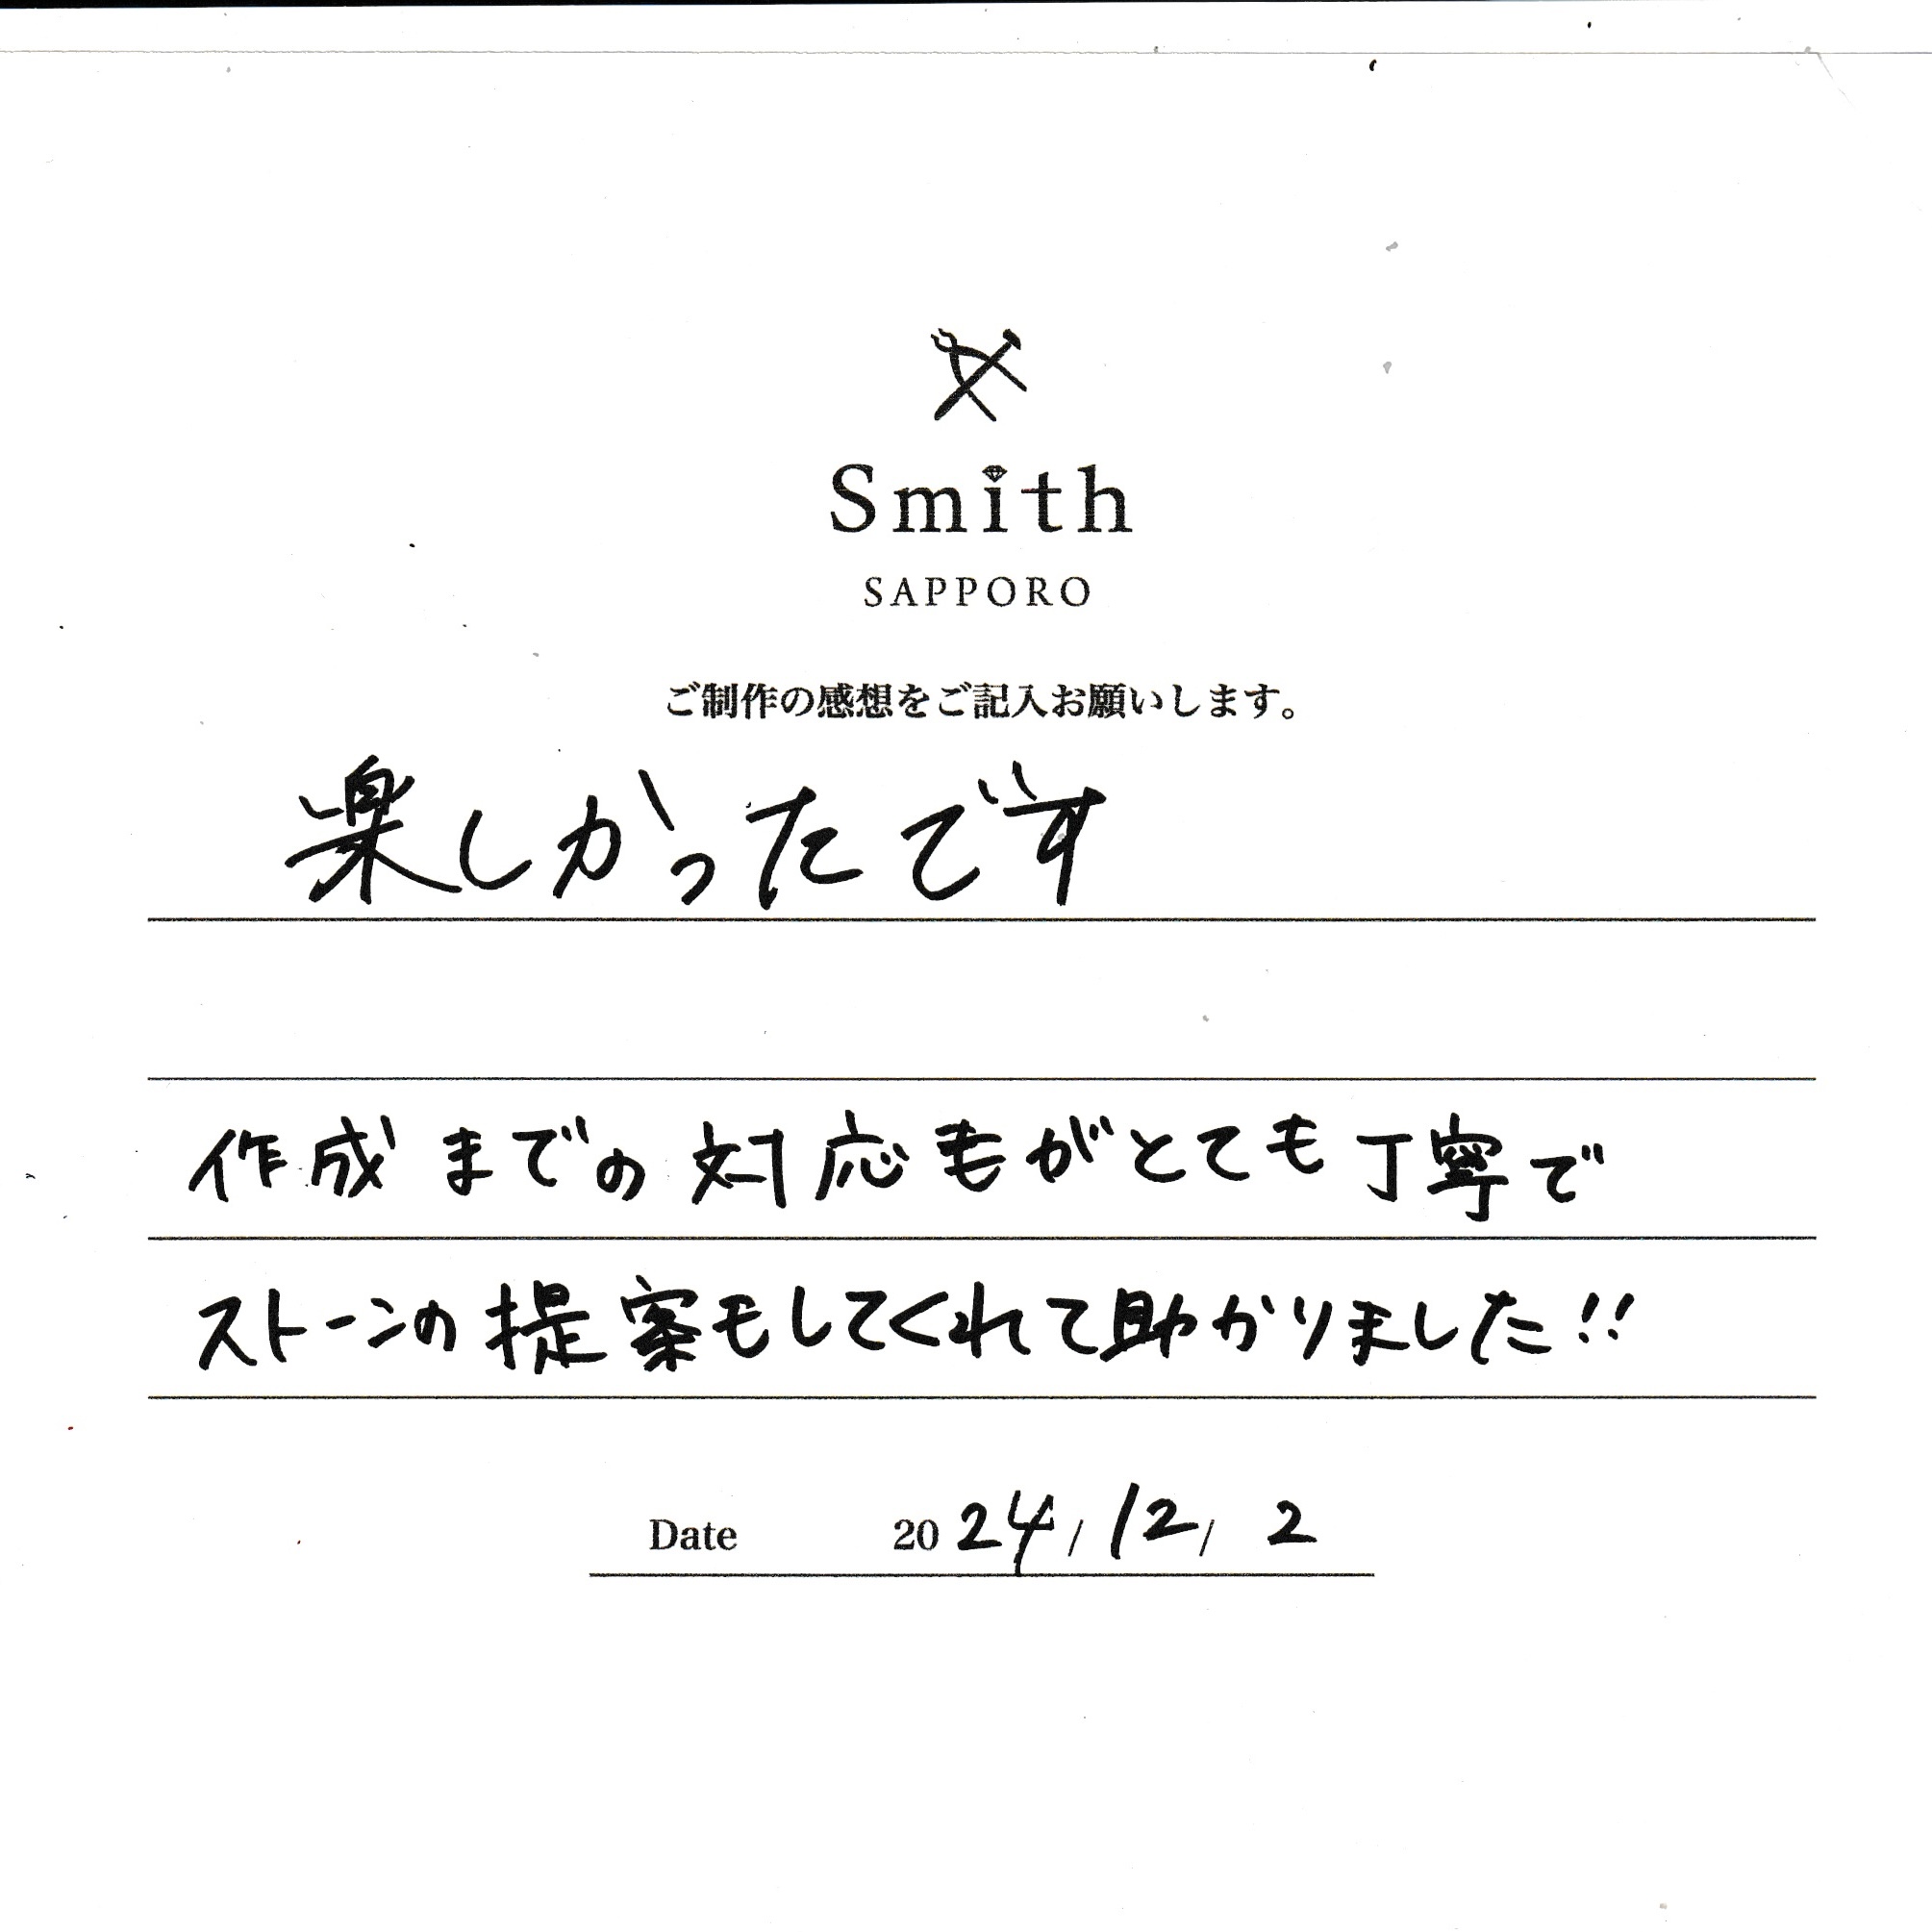 Smith
SAPPORO
ご制作の感想をご記入お願いします。
楽しかったです
作成までの対応もがとても丁寧で
ストーンの提案もしてくれて助かりました!!
Date 2024/12/2